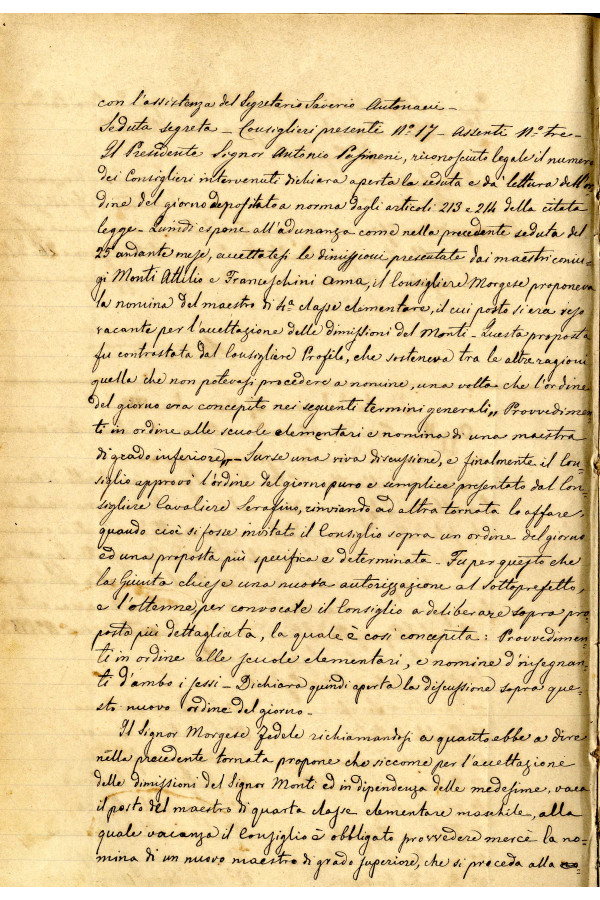 con l'assistenza del Segretario Saverio Antonaci –
Seduta segreta – Consiglieri presenti N.° 17 – Assenti N.° tre –
Il Presidente Signor Antonio Pasimeni, riconosciuto legale il numero
dei Consiglieri intervenuti dichiara aperta la seduta e dà lettura dell'or
dine del giorno depositato a norma degli articoli 213 e 214 della citata
legge – Quindi espone all'adunanza come nella precedente seduta del
25 andante mese, accettatesi le dimissioni presentate dai maestri coniu-
gi Monti Attilio e Franceschini Anna, il Consigliere Morgese proponeva
la nomina del maestro di 4.a classe elementare, il cui posto si era reso
vacante per l'accettazione delle dimissioni del Monti – Questa proposta
fu contrastata dal Consigliere Profilo, che sosteneva tra le altre ragioni
quella che non potevasi procedere a nomine, una volta che l'ordine
del giorno era concepito nei seguenti termini generali „ Provvedimen
ti in ordine alle scuole elementari e nomina di una maestra
di grado inferiore „ – Surse una viva discussione, e finalmente il Con-
siglio approvò l'ordine del giorno puro e semplice presentato dal Con-
sigliere Cavaliere Serafino, rinviando ad altra tornata lo affare,
quando cioè si fosse invitato il Consiglio sopra un ordine del giorno
ed una proposta più specifica e determinata – Fu per questo che
la Giunta chiese una nuova autorizzazione al Sottoprefetto,
e l'ottenne per convocare il Consiglio a deliberare sopra pro
posta più dettagliata, la quale è così concepita: Provvedimen-
ti in ordine alle scuole elementari, e nomine d'insegnan-
ti d'ambo i sessi – Dichiara quindi aperta la discussione sopra que-
sto nuovo ordine del giorno –
Il Signor Morgese Fedele richiamandosi a quanto ebbe a dire
nella precedente tornata propone che siccome per l'accettazione
delle dimissioni del Signor Monti ed in dipendenza delle medesime, vaca
il posto del maestro di quarta classe elementare maschile, alla
quale vacanza il Consiglio è obbligato provvedere mercè la no-
mina di un nuovo maestro di grado superiore, che si proceda alla